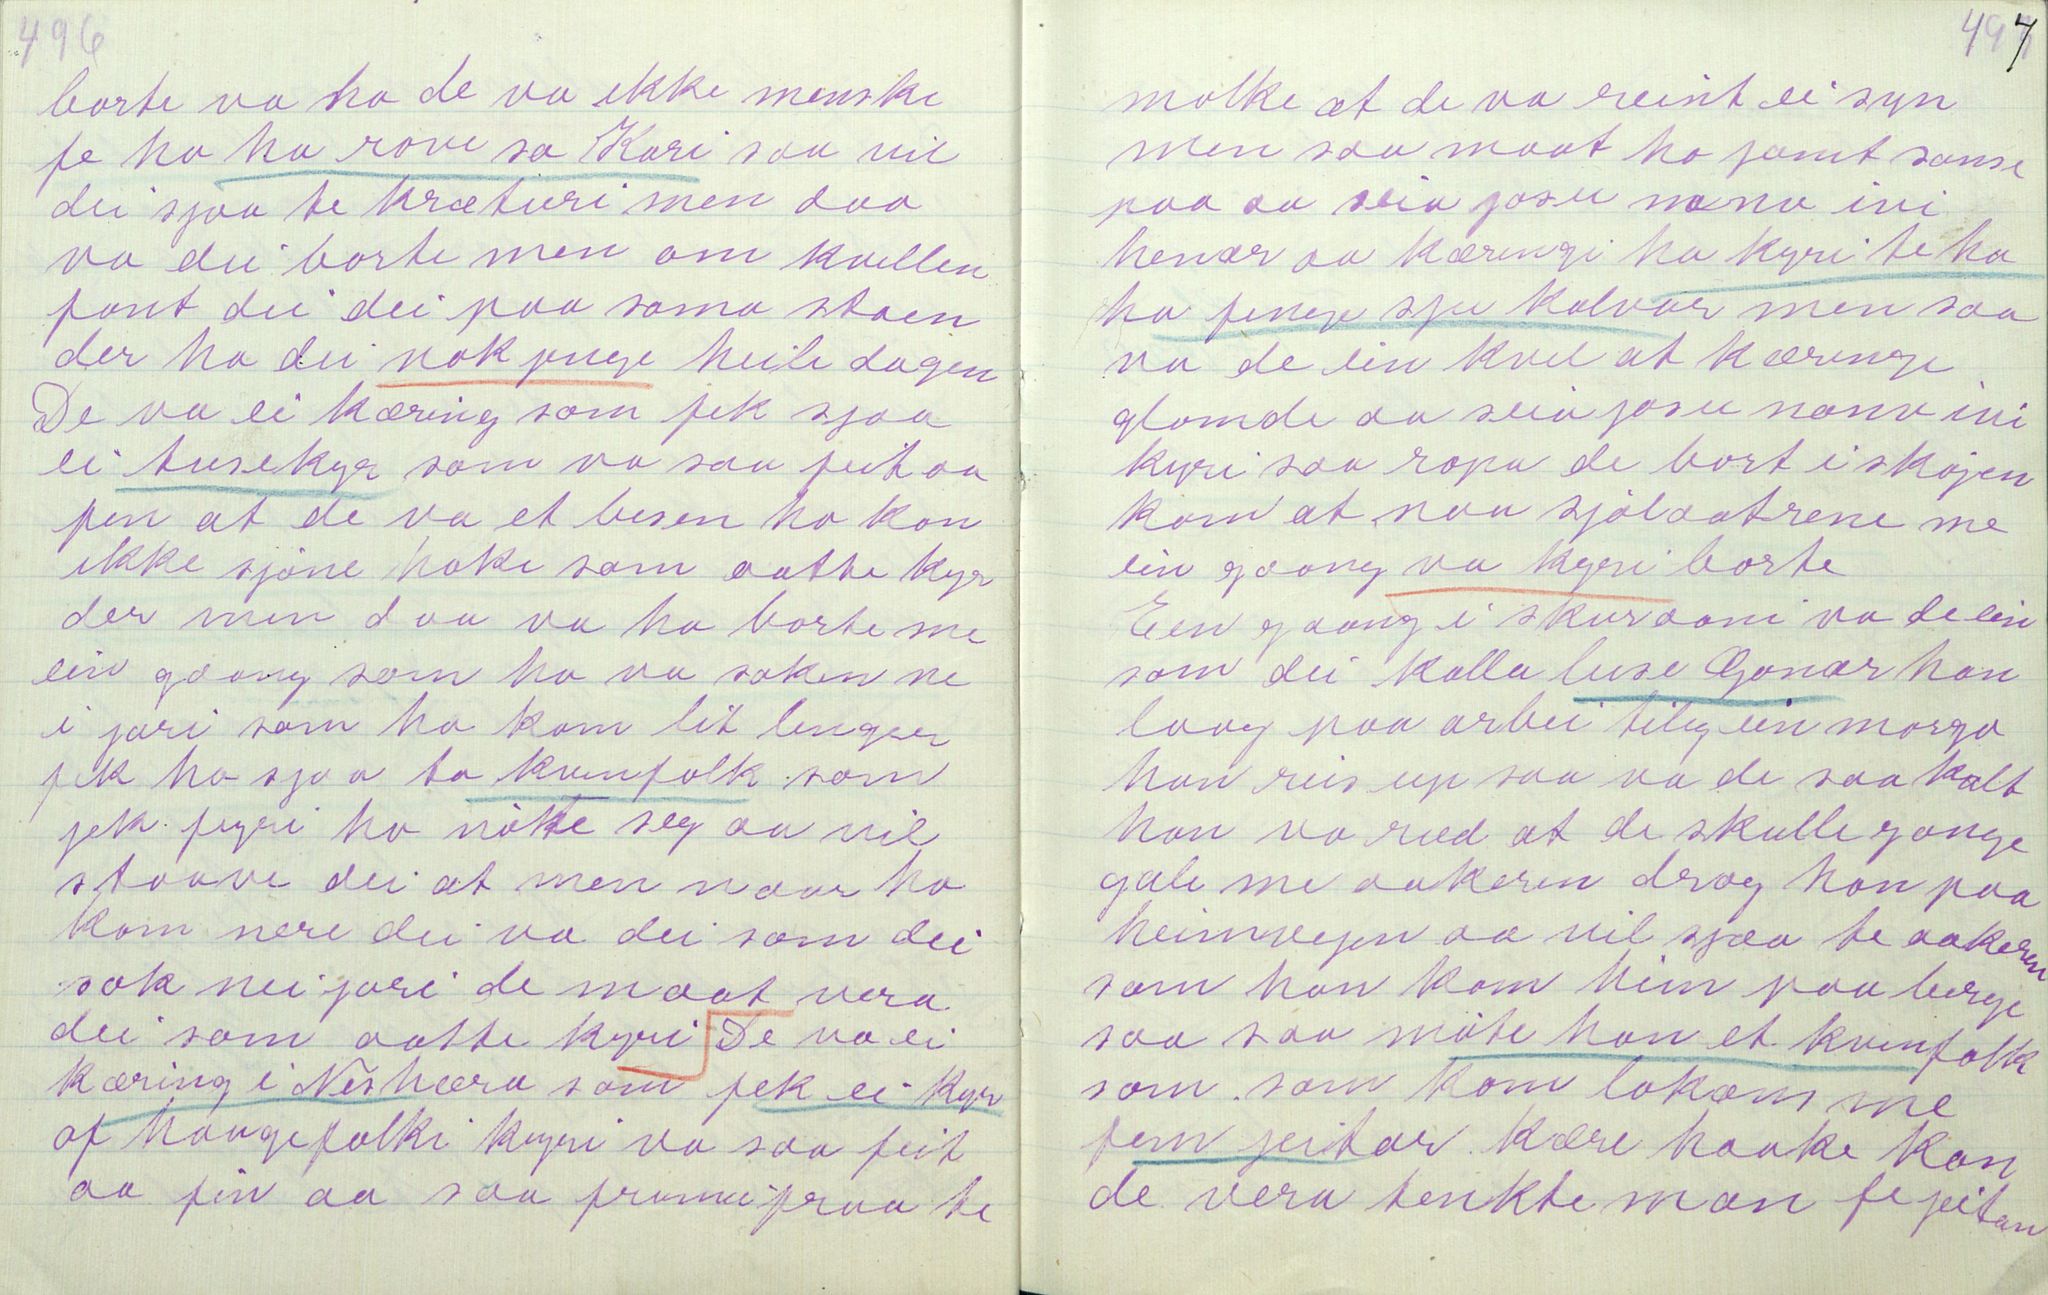 496
borte va ho de va ikke menske
fe ho ho rove sa Kari saa vil
dei sjaa te krætieri men daa
va dei borte men om kvellen
fant dei dei paa sama staen
der ha dei nok gjenge heile dagen
De va ei kæring som fek sjaa
ei tusekyr som va saa feit aa
fen at de va et besen ho kon
ikke sjøne hoke som aatte kyr
der men daa va ho borte me
ein gaang som ho va soken ne
i jori som ho kom lit lenger
fek ho sjaa to kvenfolk som
jek fyri ho nøtte seg aa vil
staave dei at men naar ho
kom nere dei va dei som dei
sok nei jori de maat vera
dei som aatte kyri De va ei
kæring i Neshæra som fek ei kyr
af haugefolki kyri va saa feit
aa fin aa saa frami fraa te
497
molke at de va reint ei syn
men saa maat ho jamt sanse
paa aa seia josu namn ivi
henar aa kæringi ha kyri te ho
ho fenge sju kalvar men saa
va de ein kvel at kæringe
glomde aa seia josu namn ivi
kyri saa ropa de bort i skojen
kom at naa sjølaatrene me
ein gaang va kyri borte
Een gaang i skuraani va de ein
som dei kalla luse Gonar han
laag paa arbei tileg ein morgo
han reis up saa va de saa kalt
han va red at de skulle gange
gale me aakeren drog han paa
heimvegen aa vil sjaa te aakeren
som han kom heim paa berge
saa saa møte han et kvenfolk
som som kom lokans me
fem jeitar kære haake kan
de vera tenkte man fe jeitan